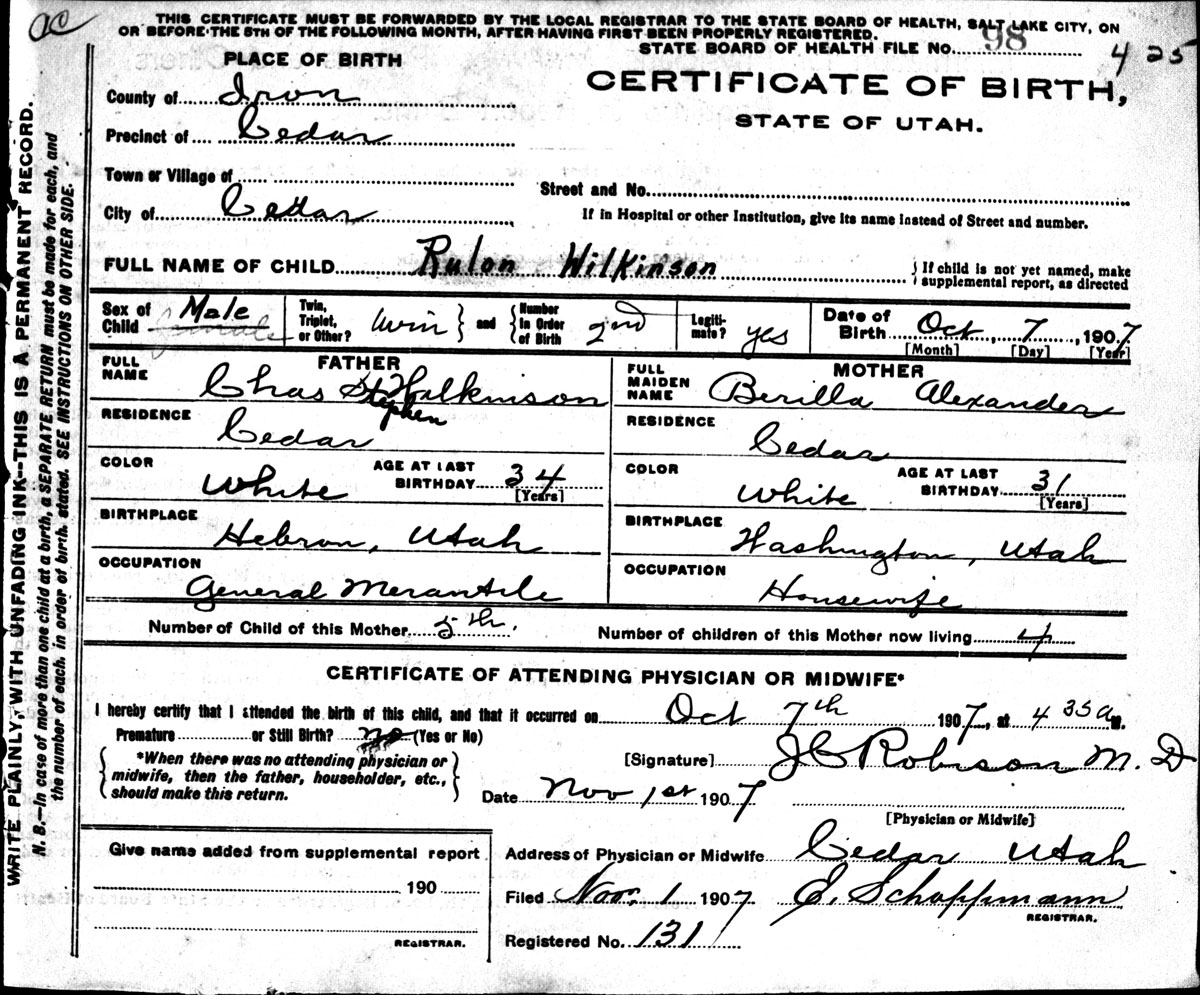 ac
THIS CERTIFICATE MUST BE FORWARDED BY THE LOCAL REGISTRAR TO THE STATE BOARD OF HEALTH, SALT LAKE CITY, ON
OR BEFORE THE 5TH OF THE FOLLOWING MONTH, AFTER HAVING FIRST BEEN PROPERLY REGISTERED.
STATE BOARD OF HEALTH FILE No. 98 425
PLACE OF BIRTH
CERTIFICATE OF BIRTH,
STATE OF UTAH.
County of Iron
Precinct of Cedar
Town or Village of
Street and No.
City of Cedar
If in Hospital or other Institution, give its name instead of Street and number.
FULL NAME OF CHILD Rulon Wilkinson
} If child is not yet named, make
supplemental report, as directed
Sex of Child Male female
Twin, Triplet, or Other? twin } and { Number in Order of Birth 2nd
Legiti-mate? yes
Date of Birth Oct, 7, 1907
[Month] [Day] [Year]
FATHER
FULL NAME Chas St Wilkinson
Stephen
RESIDENCE Cedar
COLOR White AGE AT LAST BIRTHDAY 34
[Years]
BIRTHPLACE Hebron, Utah
OCCUPATION General Merantile
MOTHER
FULL MAIDEN NAME Berilla Alexander
RESIDENCE Cedar
COLOR White AGE AT LAST BIRTHDAY 31
[Years]
BIRTHPLACE Washington, Utah
OCCUPATION Housewife
Number of Child of this Mother 5th. Number of children of this Mother now living 4
CERTIFICATE OF ATTENDING PHYSICIAN OR MIDWIFE*
I hereby certify that I attended the birth of this child, and that it occurred on Oct 7th 1907, at 4 35 a m.
Premature or Still Birth? no (Yes or No)
{ *When there was no attending physician or
midwife, then the father, householder, etc.,
should make this return. }
[Signature] J C Robison M. D
Date Nov 1st 1907
[Physician or Midwife]
Give name added from supplemental report
190
REGISTRAR.
Address of Physician or Midwife Cedar Utah
Filed Nov. 1 1907 E. Schoppmann
REGISTRAR.
Registered No. 131
WRITE PLAINLY, WITH UNFADING INK--THIS IS A PERMANENT RECORD.
N. B.--In case of more than one child at a birth, a SEPARATE RETURN must be made for each, and
the number of each, in order of birth, stated. SEE INSTRUCTIONS ON OTHER SIDE.